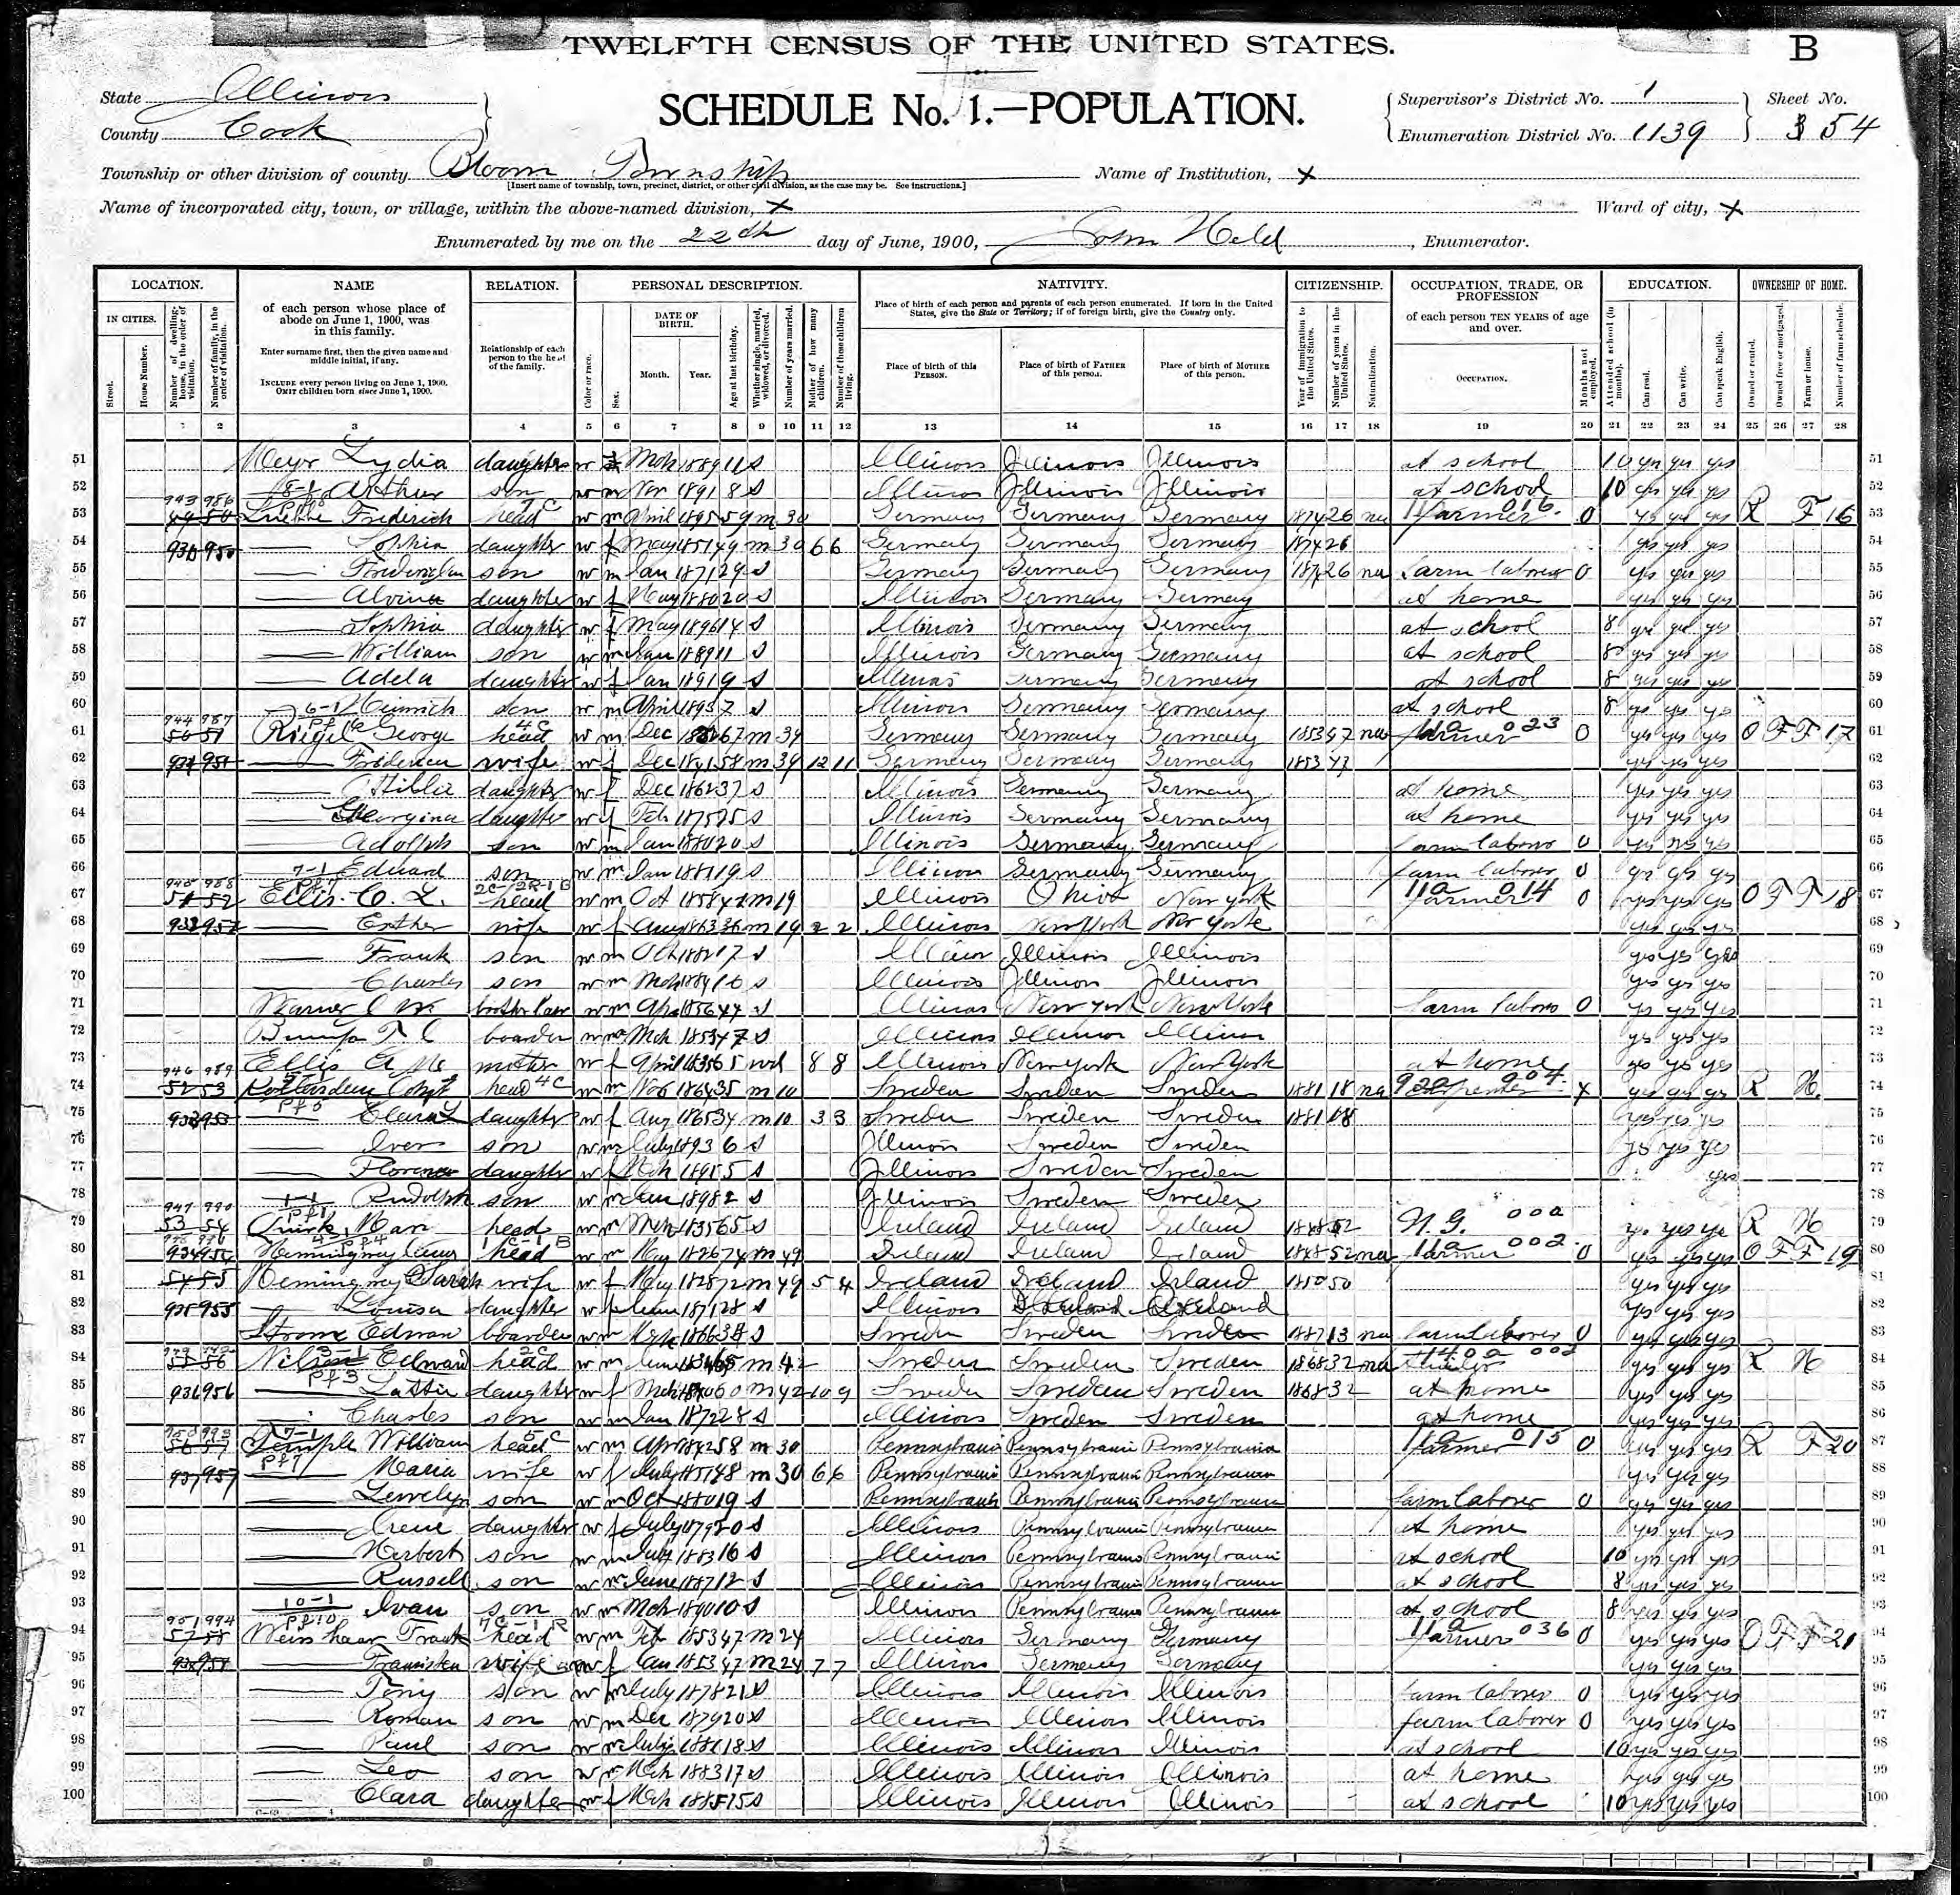 TWELFTH CENSUS OF THE UNITED STATES.
B
State Illinois
County Cook
SCHEDULE No. 1.—POPULATION.
Supervisor's District No. 1
Enumeration District No. 1139
Sheet No.
54
Township or other division of county Bloom Township
[Insert name of township, town, precinct, district, or other civil division, as the case may be. See instructions.]
Name of Institution, X
Name of incorporated city, town, or village, within the above-named division, X
Ward of city, X
Enumerated by me on the 22th day of June, 1900, John Held, Enumerator.
LOCATION. NAME RELATION. PERSONAL DESCRIPTION. NATIVITY. CITIZENSHIP. OCCUPATION, TRADE, OR PROFESSION EDUCATION. OWNERSHIP OF HOME.
IN CITIES. Street. House Number. Number of dwelling-house, in the order of visitation. Number of family, in the order of visitation.
of each person whose place of abode on June 1, 1900, was in this family.
Enter surname first, then the given name and middle initial, if any.
INCLUDE every person living on June 1, 1900. OMIT children born since June 1, 1900.
Relationship of each person to the head of the family.
Color or race. Sex. DATE OF BIRTH. Month. Year. Age at last birthday. Whether single, married, widowed, or divorced. Number of years married. Mother of how many children. Number of these children living.
Place of birth of each person and parents of each person enumerated. If born in the United States, give the State or Territory; if of foreign birth, give the Country only.
Place of birth of this PERSON. Place of birth of FATHER of this person. Place of birth of MOTHER of this person.
Year of immigration to the United States. Number of years in the United States. Naturalization.
of each person TEN YEARS of age and over.
OCCUPATION. Months not employed.
Attended school (in months). Can read. Can write. Can speak English.
Owned or rented. Owned free or mortgaged. Farm or house. Number of farm schedule.
1 2 3 4 5 6 7 8 9 10 11 12 13 14 15 16 17 18 19 20 21 22 23 24 25 26 27 28
51 Meyr Lydia daughter w f Mch 1889 11 S Illinois Illinois Illinois at school 10 yes yes yes 51
52 Arthur son w m Nov 1891 8 S Illinois Illinois Illinois at school 10 yes yes yes 52
53 Frederich head w m April 59 m 30 Germany Germany Germany 1874 26 na farmer 0 yes yes yes R F 16 53
54 Sophia daughter w f May 1851 49 m 30 6 6 Germany Germany Germany 1874 26 yes yes yes 54
55 son w m Jan 1871 29 S Germany Germany Germany 1874 26 na farm laborer 0 yes yes yes 55
56 Alvina daughter w f May 1880 20 S Illinois Germany Germany at home yes yes yes 56
57 Sophia daughter w f May 14 S Illinois Germany Germany at school 8 yes yes yes 57
58 William son w m Jan 1889 11 S Illinois Germany Germany at school 8 yes yes yes 58
59 Adela daughter w f Jan 1891 9 S Illinois Germany Germany at school 8 yes yes yes 59
60 Heinrich son w m April 1893 7 S Illinois Germany Germany at school 8 yes yes yes 60
61 Riegel George head w m Dec 67 m 39 Germany Germany Germany 1853 47 na farmer 0 yes yes yes O F F 17 61
62 wife w f Dec 1841 58 m 39 12 11 Germany Germany Germany 1853 47 yes yes yes 62
63 daughter w f Dec 1862 37 S Illinois Germany Germany at home yes yes yes 63
64 Georgina daughter w f Feb 1875 25 S Illinois Germany Germany at home yes yes yes 64
65 Adolph son w m Jan 1880 20 S Illinois Germany Germany farm laborer 0 yes no yes 65
66 Eduard son w m Jan 1881 19 S Illinois Germany Germany farm laborer 0 yes yes yes 66
67 Ellis C. L. head w m Oct 1858 41 m 19 Illinois Ohio New York farmer 0 yes yes yes O F F 18 67
68 Esther wife w f Aug 1863 36 m 19 2 2 Illinois New York New York yes yes yes 68
69 Frank son w m Oct 1882 17 S Illinois Illinois Illinois yes yes yes 69
70 Charles son w m Mch 1884 16 S Illinois Illinois Illinois yes yes yes 70
71 Warner w m Apr 1856 44 S Illinois New York New York farm laborer 0 yes yes yes 71
72 boarder w m Mch 1853 47 S Illinois Illinois Illinois yes yes yes 72
73 Ellis mother w f April 1835 65 wd 8 8 Illinois New York New York at home yes yes yes 73
74 head w m Nov 1864 35 m 10 Sweden Sweden Sweden 1881 18 na X yes yes yes R H 74
75 Clara daughter w f Aug 1865 34 m 10 3 3 Sweden Sweden Sweden 1881 18 yes yes yes 75
76 Iver son w m July 1893 6 S Illinois Sweden Sweden yes yes yes 76
77 Florence daughter w f Mch 1895 5 S Illinois Sweden Sweden yes 77
78 Rudolph son w m 1898 2 S Illinois Sweden Sweden 78
79 Quirk head w m Mch 1835 65 S Ireland Ireland Ireland 1848 52 N.G. yes yes yes R H 79
80 Hemingway head w m May 1826 74 m 49 Ireland Ireland Ireland 1848 52 na farmer 0 yes yes yes O F F 19 80
81 Hemingway Sarah wife w f May 1828 72 m 49 5 4 Ireland Ireland Ireland 1850 50 yes yes yes 81
82 Louisa daughter w f 1871 28 S Illinois Ireland Ireland yes yes yes 82
83 Strom Edwan boarder w m S Sweden Sweden Sweden 1887 13 na farm laborer 0 yes yes yes 83
84 Edward head w m June 65 m 42 Sweden Sweden Sweden 1868 32 na yes yes yes R H 84
85 daughter w f Mch 1840 60 m 42 10 9 Sweden Sweden Sweden 1868 32 at home yes yes yes 85
86 Charles son w m Jan 1872 28 S Illinois Sweden Sweden at home yes yes yes 86
87 Temple William head w m April 1842 58 m 30 Pennsylvania Pennsylvania Pennsylvania farmer 0 yes yes yes R F 20 87
88 Maria wife w f July 1851 48 m 30 6 6 Pennsylvania Pennsylvania Pennsylvania yes yes yes 88
89 Lewelyn son w m Oct 1880 19 S Pennsylvania Pennsylvania Pennsylvania farm laborer 0 yes yes yes 89
90 Irene daughter w f July 1879 20 S Illinois Pennsylvania Pennsylvania at home yes yes yes 90
91 Herbert son w m July 1883 16 S Illinois Pennsylvania Pennsylvania at school 10 yes yes yes 91
92 Russell son w m June 1887 12 S Illinois Pennsylvania Pennsylvania at school 8 yes yes yes 92
93 Ivan son w m Mch 1890 10 S Illinois Pennsylvania Pennsylvania at school 8 yes yes yes 93
94 Weishaar Frank head w m Feb 1853 47 m 24 Illinois Germany Germany farmer 0 yes yes yes O F F 21 94
95 wife w f Jan 1853 47 m 24 7 7 Illinois Germany Germany yes yes yes 95
96 Tony son w m July 1878 21 S Illinois Illinois Illinois farm laborer 0 yes yes yes 96
97 Roman son w m Dec 1879 20 S Illinois Illinois Illinois farm laborer 0 yes yes yes 97
98 Paul son w m July 1881 18 S Illinois Illinois Illinois at school 10 yes yes yes 98
99 Leo son w m Mch 1883 17 S Illinois Illinois Illinois at home yes yes yes 99
100 Clara daughter w f Mch 1885 15 S Illinois Illinois Illinois at school 10 yes yes yes 100